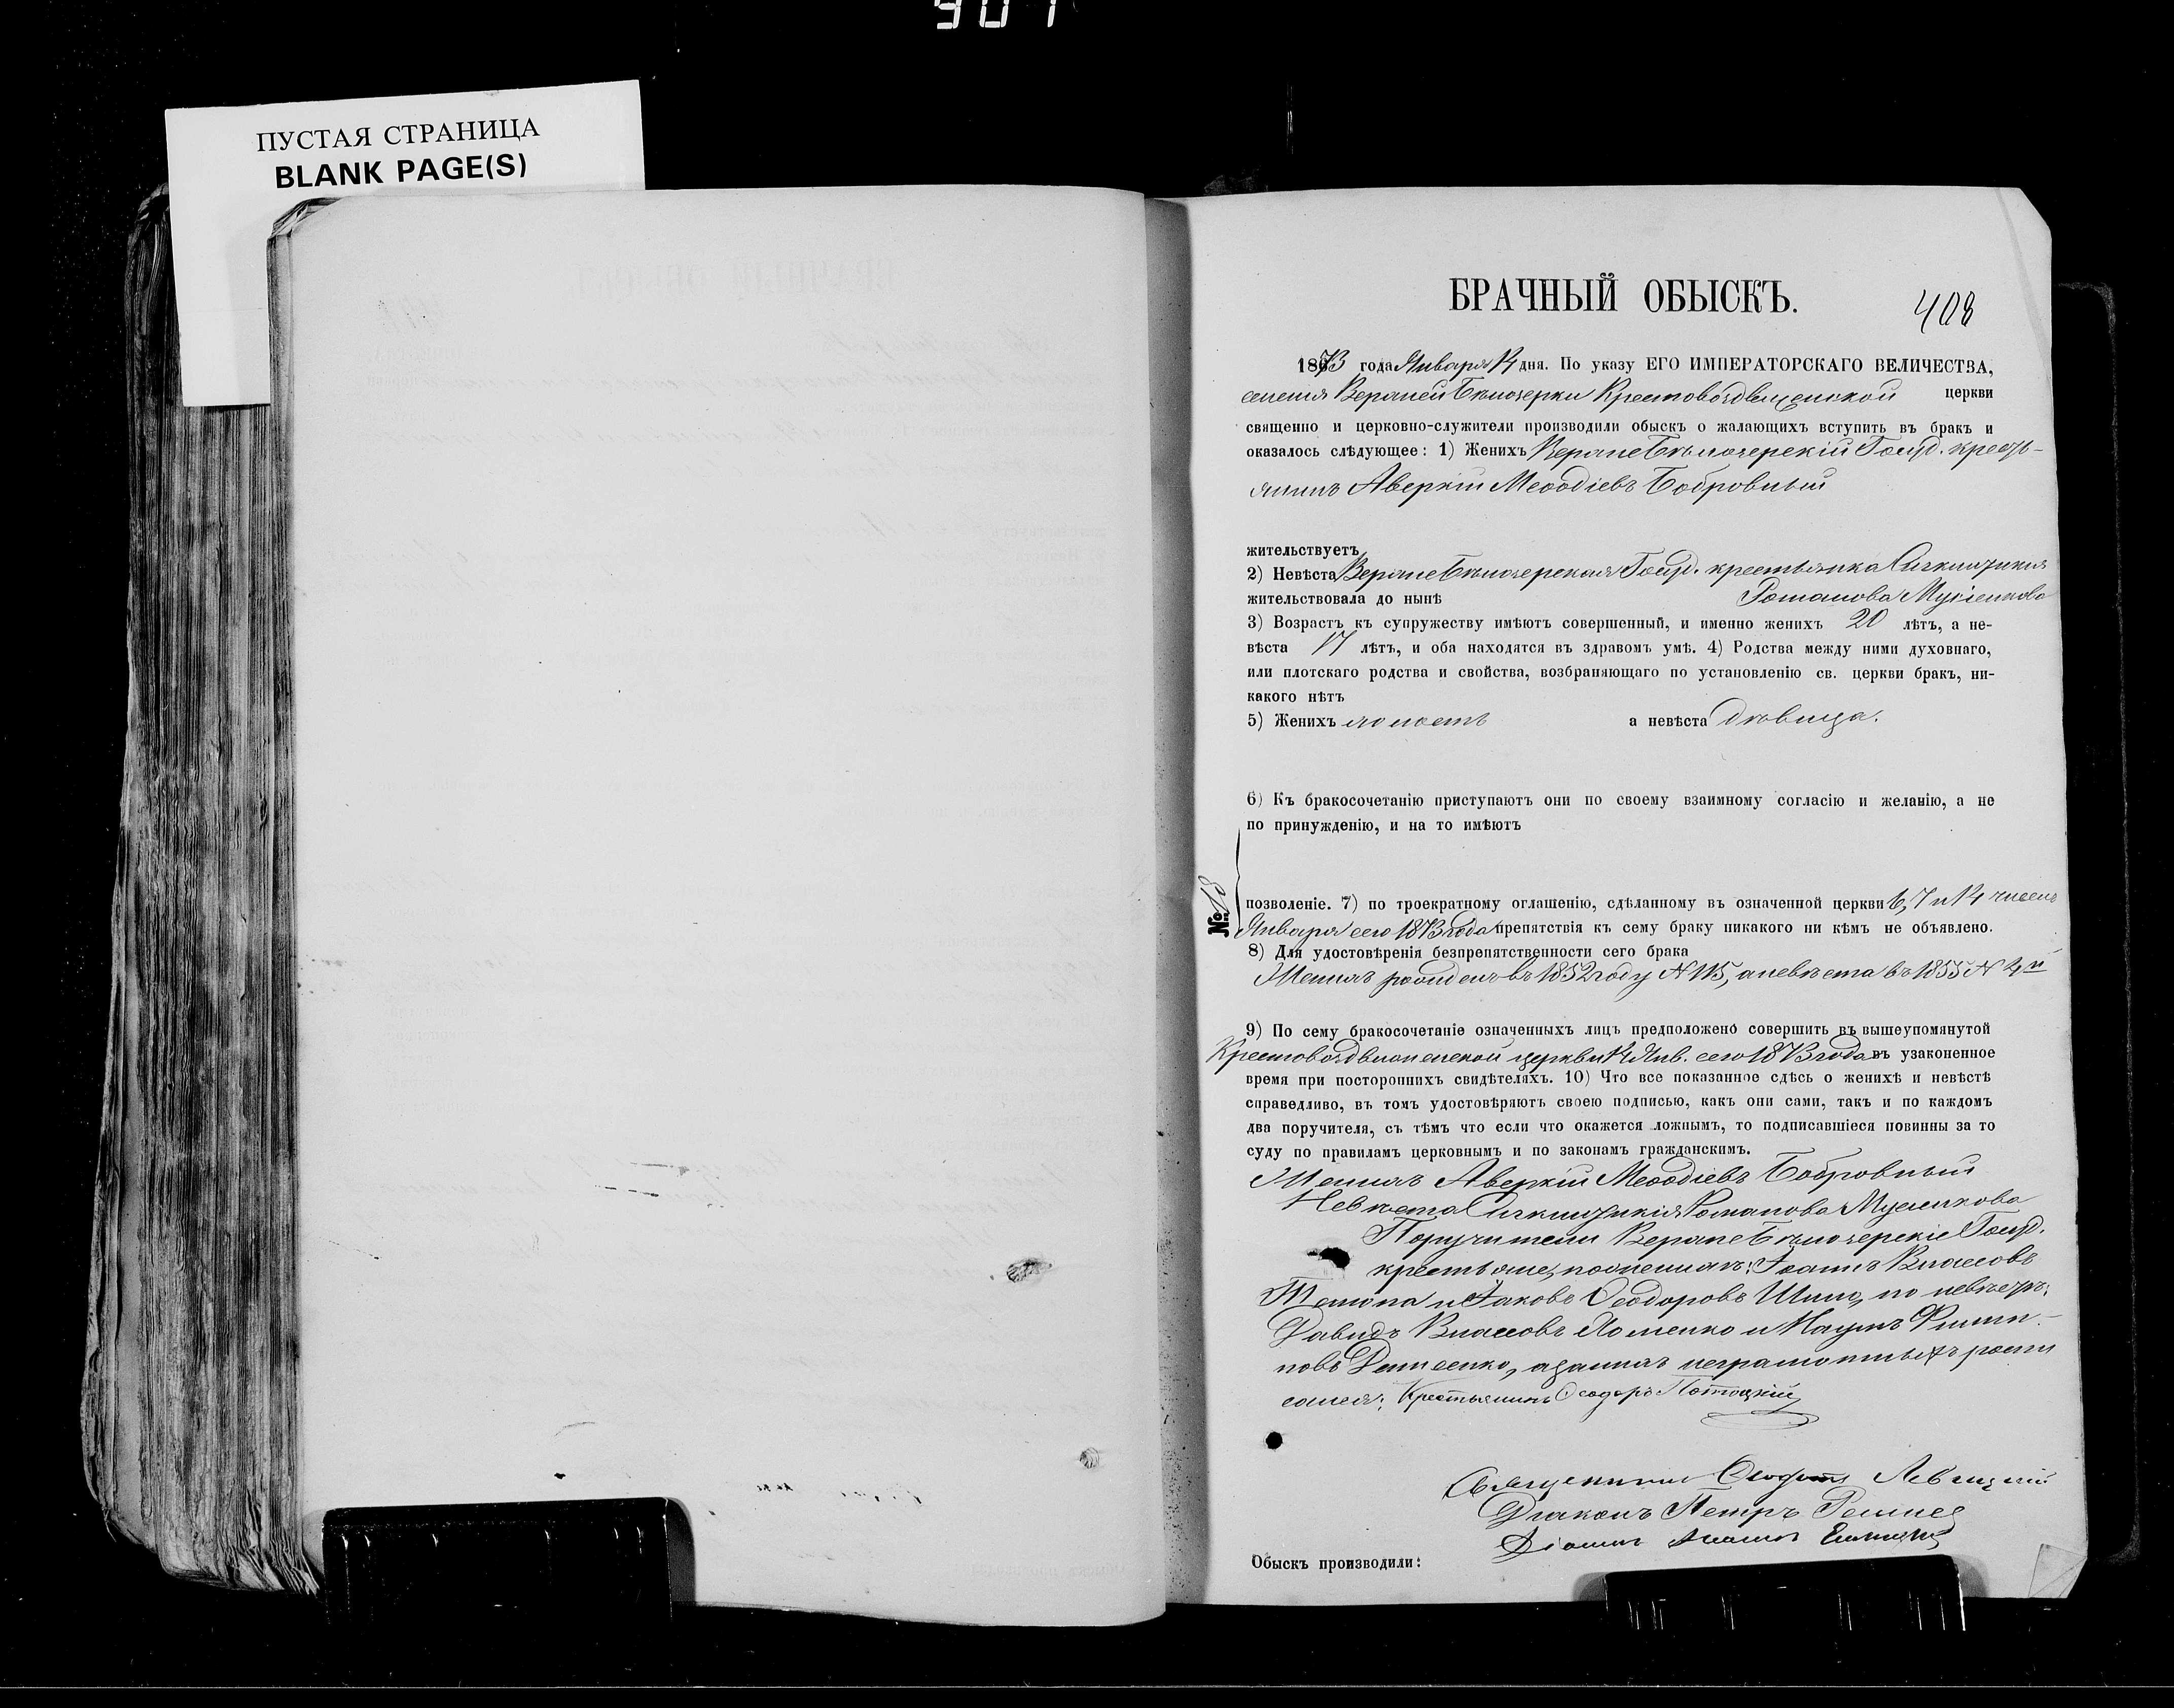 907
ПУСТАЯ СТРАНИЦА
BLANK PAGE(S)
БРАЧНЫЙ ОБЫСКЪ.
408
1873 года Января 14 дня. По указу ЕГО ИМПЕРАТОРСКАГО ВЕЛИЧЕСТВА,
селенія Верхней Бѣлозерки Крестовоздвиженской церкви
священно и церковно-служители производили обыскъ о жалающихъ вступить въ бракъ и
оказалось слѣдующее: 1) Женихъ Верхнебѣлозерскій Госуд. кресть-
янинъ Аверкій Меѳодіевъ Бобровный
жительствуетъ
2) Невѣста Верхнебѣлозерская Госуд. крестьянка Синклитикія
жительствовала до нынѣ Романова
3) Возрастъ къ супружеству имѣютъ совершенный, и именно женихъ 20 лѣтъ, а не-
вѣста 17 лѣтъ, и оба находятся въ здравомъ умѣ. 4) Родства между ними духовнаго,
или плотскаго родства и свойства, возбраняющаго по установленію св. церкви бракъ, ни-
какого нѣтъ
5) Женихъ холостъ а невѣста дѣвица.
6) Къ бракосочетанію приступаютъ они по своему взаимному согласію и желанію, а не
по принужденію, и на то имѣютъ
№ 18
позволеніе. 7) по троекратному оглашенію, сдѣланному въ означенной церкви 6, 7 и 14 чиселъ
Января сего 1873 года препятствія къ сему браку никакого ни кѣмъ не объявлено.
8) Для удостовѣренія безпрепятственности сего брака
Женихъ рожденъ въ 1852 году N 115, а невѣста въ 1855 N 4й
9) По сему бракосочетаніе означенныхъ лицъ предположено совершить въ вышеупомянутой
Крестовоздвиженской церкви 14 Янв. сего 1873 года въ узаконенное
время при постороннихъ свидѣтеляхъ. 10) Что все показанное сдѣсь о женихѣ и невѣстѣ
справедливо, въ томъ удостовѣряютъ своею подписью, какъ они сами, такъ и по каждомъ
два поручителя, съ тѣмъ что если что окажется ложнымъ, то подписавшіеся повинны за то
суду по правиламъ церковнымъ и по законамъ гражданскимъ.
Женихъ Аверкій Меѳодіевъ Бобровный
Невѣста Синклитикія Романова
Поручители Верхнебѣлозерскіе Госуд.
крестьяне, по женихѣ: Іоаннъ Власовъ
и Іаковъ Ѳеодоровъ по невѣстѣ:
Давидъ Власовъ Хоменко и Наумъ Филип-
повъ Денисенко, а за нихъ неграмотныхъ роспи
сался: Крестьянинъ Ѳеодоръ Потоцкій
Священникъ Левицкій
Діаконъ Петръ
Обыскъ производили: